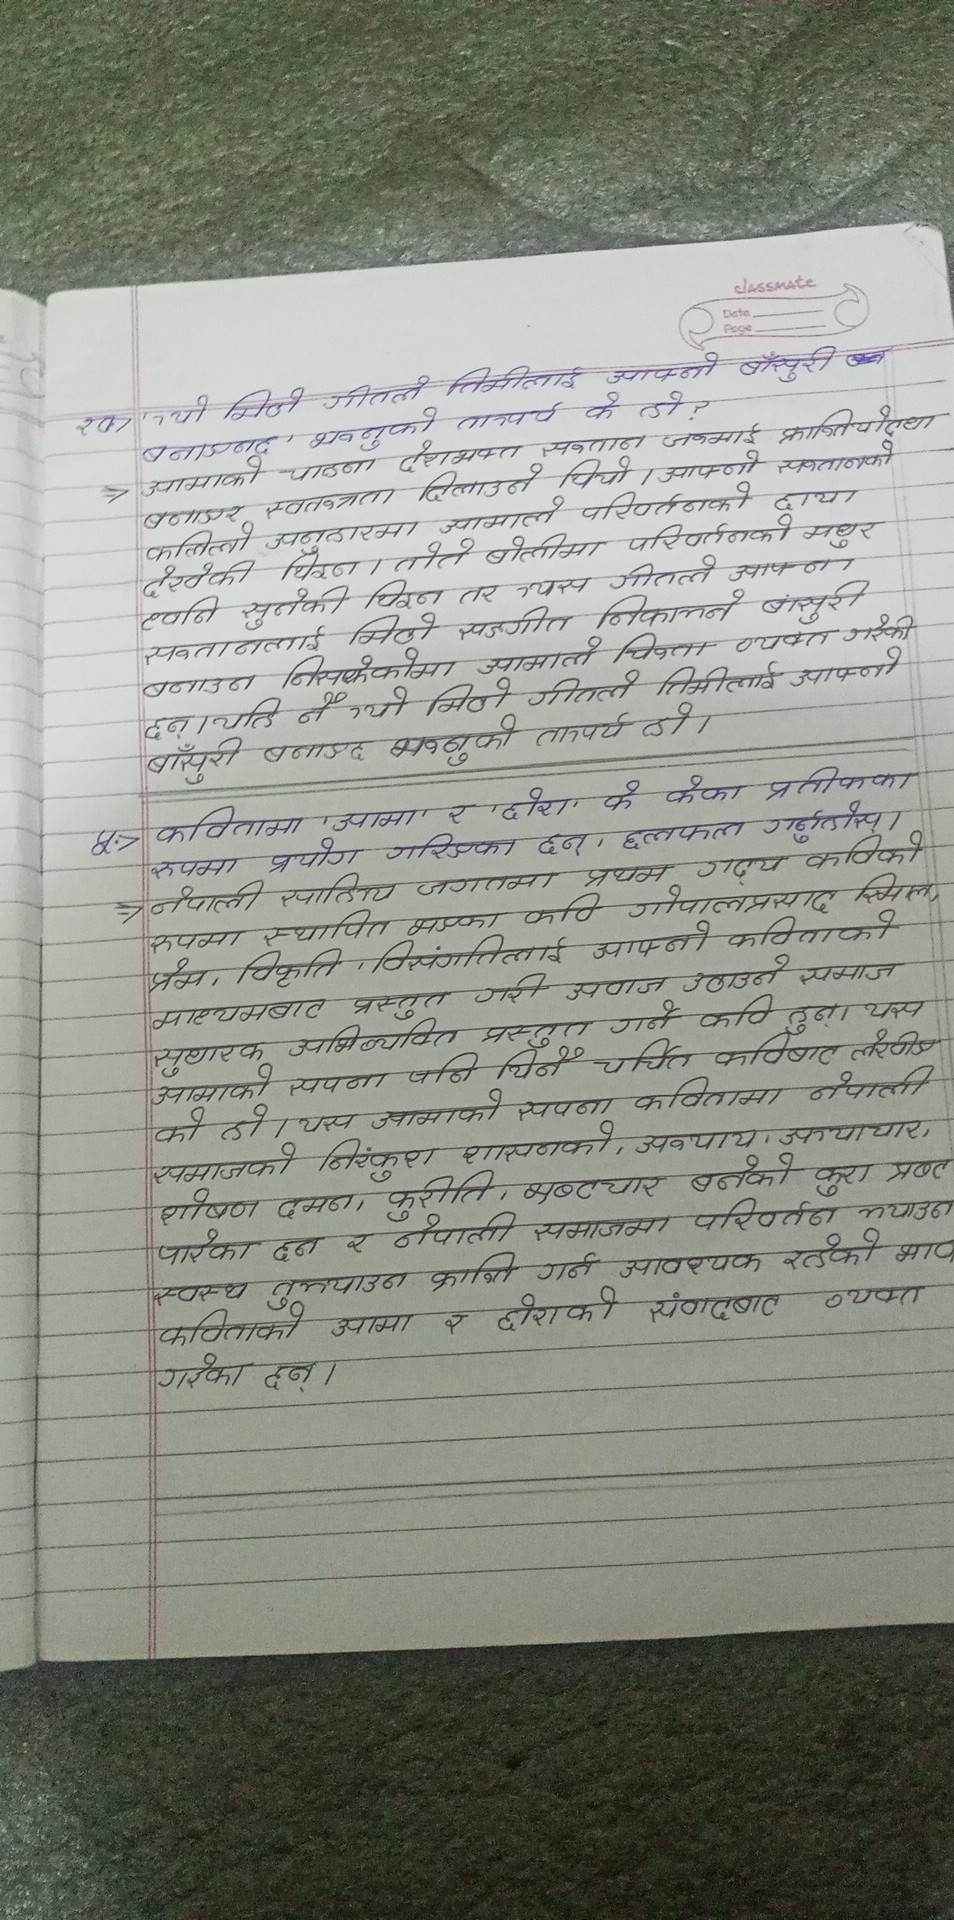 classmate
Date
Page
२क) 'त्यो मिठो गीतले तिमीलाई आफ्नो बाँसुरी
बनाएनछ' भन्नुको तात्पर्य के हो?
⇒ आमाको चाहना देशभक्त सन्तान जन्माई क्रान्तियोद्धा
बनाएर स्वतन्त्रता दिलाउने थियो। आफ्नो सन्तानको
कलिलो अनुहारमा आमाले परिवर्तनको छाया
देखेकी थिइन्। तोते बोलीमा परिवर्तनको मधुर
ध्वनि सुनेकी थिइन तर त्यस गीतले आफ्ना
सन्तानलाई मिठो सङ्गीत निकाल्ने बांसुरी
बनाउन नसकेकोमा आमाले चिन्ता व्यक्त गरेकी
छन्। यहि नै त्यो मिठो गीतले तिमीलाई आफ्नो
बाँसुरी बनाएछ भन्नुको तात्पर्य हो।
५.> कवितामा 'आमा' र 'छोरा' के केका प्रतीकका
रुपमा प्रयोग गरिएका छन्, छलफल गर्नुहोस्।
⇒ नेपाली साहित्य जगतमा प्रथम गद्य कविको
रुपमा स्थापित भएका कवि गोपालप्रसाद रिमाल,
प्रेम, विकृति, विसंगतिलाई आफ्नो कविताको
माध्यमबाट प्रस्तुत गरी अवाज उठाउने समाज
सुधारक अभिव्यक्ति प्रस्तुत गर्ने कवि हुन्। यस
आमाको सपना पनि यिनै चर्चित कविबाट लेखीए
को हो। यस आमाको सपना कवितामा नेपाली
समाजको निरंकुश शासनको, अन्याय, अत्याचार,
शोषण दमन, कुरीति, भ्रष्टचार बनेको कुरा प्रष्ट
पारेका छन र नेपाली समाजमा परिवर्तन ल्याउन
स्वस्थ तुल्याउन क्रान्ति गर्न आवश्यक रहेको भाव
कविताको आमा र छोराको संवादबाट व्यक्त
गरेका छन्।